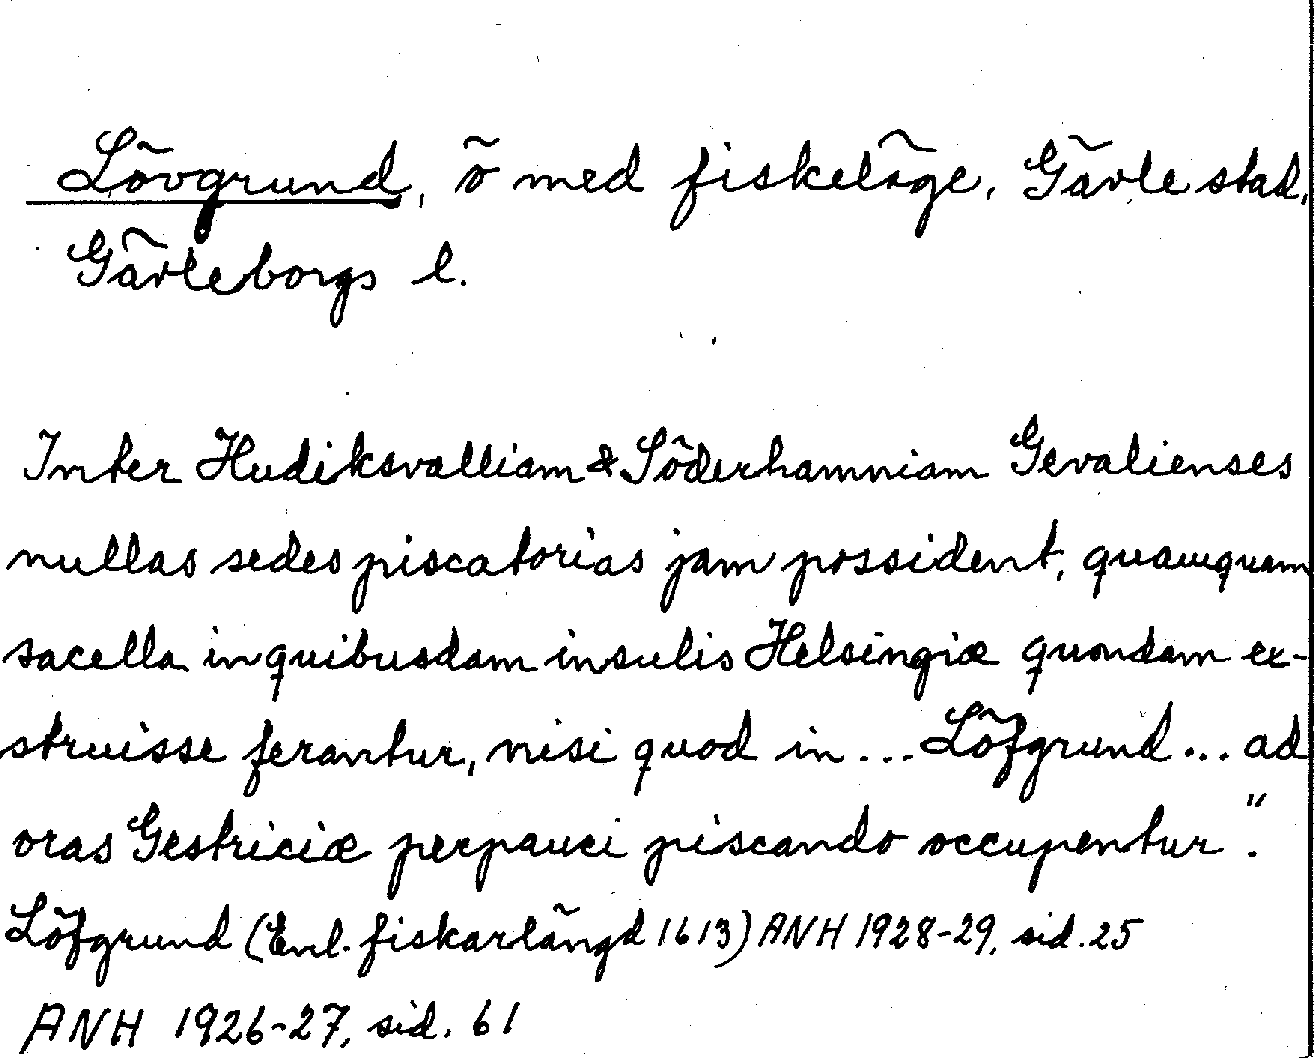 Lövgrund, ö med fiskeläge, Gävle stad,
Gävleborgs l.
Inter Hudiksvalliam & Söderhamniam Gevalienses
nullas sedes piscatorias jam possident, quamquam
sacella in quibusdam insulis Helsingiæ quondam ex-
struisse ferantur, nisi quod in ... Löfgrund ... ad
oras Gestriciæ perpauci piscando occupentur".
Löfgrund (Enl. fiskarlängd 1613) ANH 1928-29, sid. 25
ANH 1926-27, sid. 61